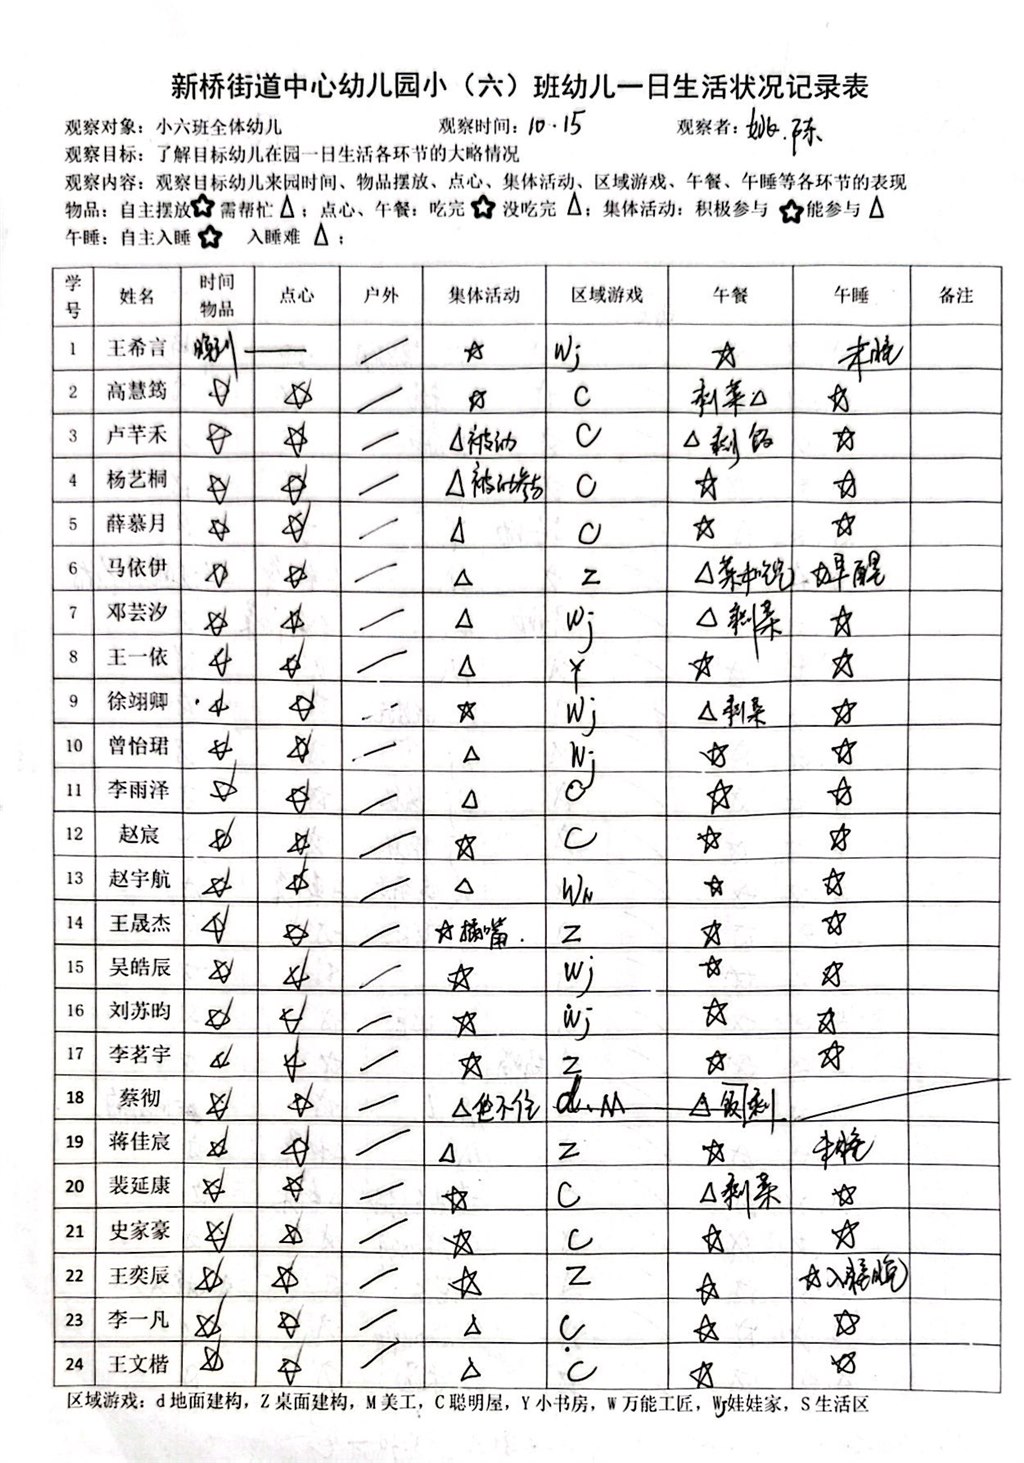 新桥街道中心幼儿园小（六）班幼儿一日生活状况记录表
观察对象：小六班全体幼儿 观察时间：10.15 观察者：姚.陈
观察目标：了解目标幼儿在园一日生活各环节的大略情况
观察内容：观察目标幼儿来园时间、物品摆放、点心、集体活动、区域游戏、午餐、午睡等各环节的表现
物品：自主摆放☆需帮忙△；点心、午餐：吃完☆没吃完△；集体活动：积极参与☆能参与△
午睡：自主入睡☆ 入睡难△；
学号 姓名 时间物品 点心 户外 集体活动 区域游戏 午餐 午睡 备注
1 王希言 晚到 — / ☆ Wj ☆ 未睡
2 高慧筠 ☆ ☆ / ☆ C 剩菜△ ☆
3 卢芊禾 ☆ ☆ / △被动 C △剩饭 ☆
4 杨艺桐 ☆ ☆ / △被动参与 C ☆ ☆
5 薛慕月 ☆ ☆ / △ C ☆ ☆
6 马依伊 ☆ ☆ / △ Z △菜未吃完 ☆早醒
7 邓芸汐 ☆ ☆ / △ Wj △剩菜 ☆
8 王一依 ☆ ☆ / △ Y ☆ ☆
9 徐翊卿 ☆ ☆ / ☆ Wj △剩菜 ☆
10 曾怡珺 ☆ ☆ / △ Wj ☆ ☆
11 李雨泽 ☆ ☆ / △ C ☆ ☆
12 赵宸 ☆ ☆ / ☆ C ☆ ☆
13 赵宇航 ☆ ☆ / △ Wn ☆ ☆
14 王晟杰 ☆ ☆ / ☆插嘴. Z ☆ ☆
15 吴皓辰 ☆ ☆ / ☆ Wj ☆ ☆
16 刘苏昀 ☆ ☆ / ☆ Wj ☆ ☆
17 李茗宇 ☆ ☆ / ☆ Z ☆ ☆
18 蔡彻 ☆ ☆ / △坐不住 d、M △饭剩.
19 蒋佳宸 ☆ ☆ / △ Z ☆ 未睡
20 裴延康 ☆ ☆ / ☆ C △剩菜 ☆
21 史家豪 ☆ ☆ / ☆ C ☆ ☆
22 王奕辰 ☆ ☆ / ☆ Z ☆ ☆入睡晚
23 李一凡 ☆ ☆ / △ C ☆ ☆
24 王文楷 ☆ ☆ / △ C ☆ ☆
区域游戏：d地面建构，Z桌面建构，M美工，C聪明屋，Y小书房，W万能工匠，Wj娃娃家，S生活区